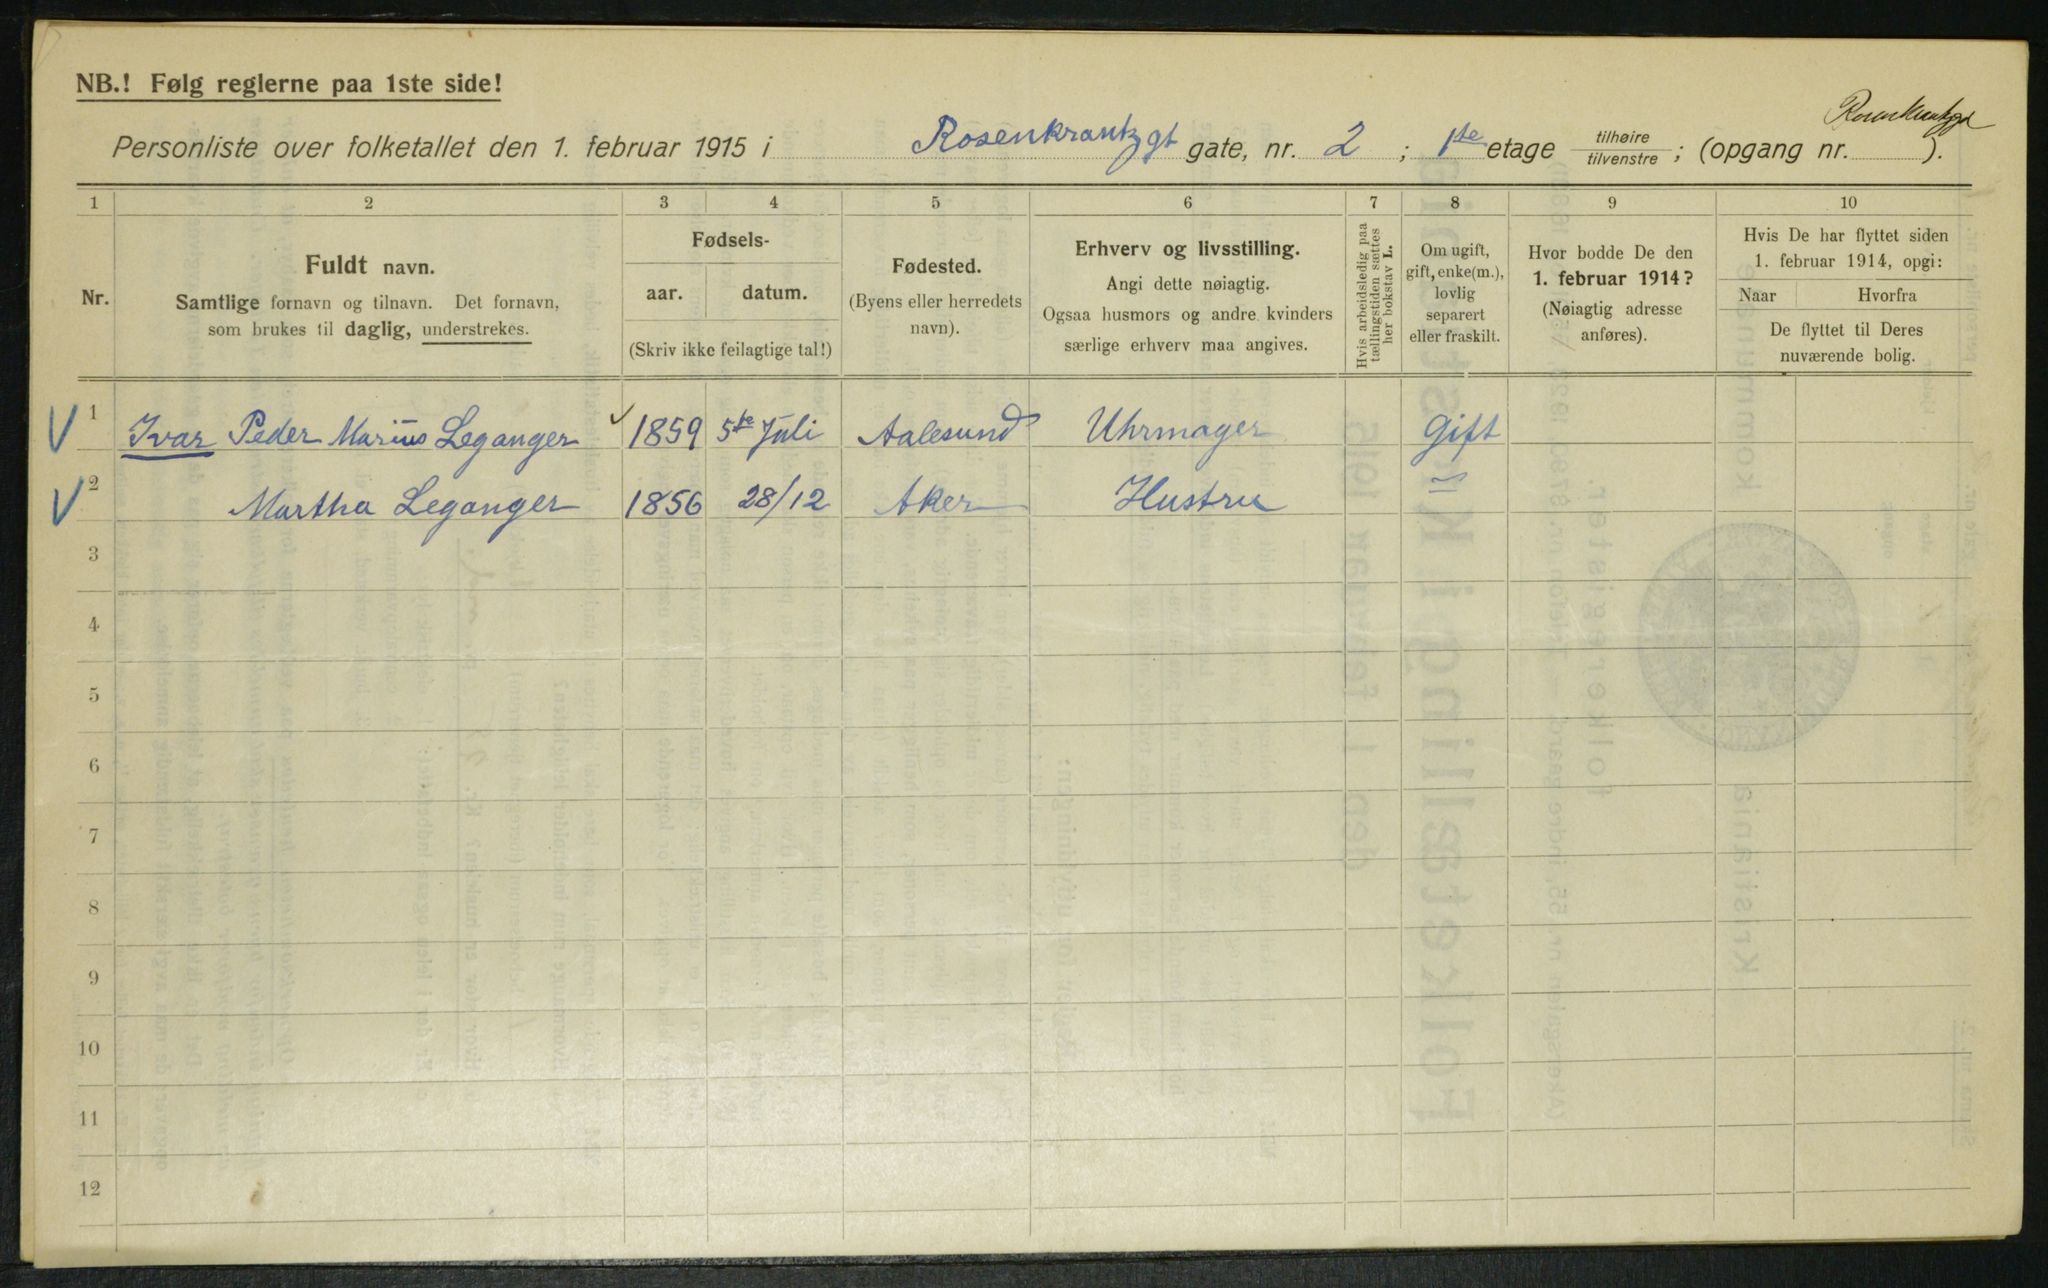 NB.! Følg reglerne paa 1ste side!
Rosenkrantzgt
Personliste over folketallet den 1. februar 1915 i Rosenkrantzgt gate, nr. 2 ; 1ste etage tilhøire/tilvenstre ; (opgang nr. ).
1 2 3 4 5 6 7 8 9 10
Nr.
Fuldt navn.
Samtlige fornavn og tilnavn. Det fornavn,
som brukes til daglig, understrekes.
Fødsels-
aar. datum.
(Skriv ikke feilagtige tal!)
Fødested.
(Byens eller herredets
navn).
Erhverv og livsstilling.
Angi dette nøiagtig.
Ogsaa husmors og andre kvinders
særlige erhverv maa angives.
Hvis arbeidsledig paa
tællingstiden sættes
her bokstav L.
Om ugift,
gift, enke(m.),
lovlig
separert
eller fraskilt.
Hvor bodde De den
1. februar 1914?
(Nøiagtig adresse
anføres).
Hvis De har flyttet siden
1. februar 1914, opgi:
Naar Hvorfra
De flyttet til Deres
nuværende bolig.
1 Ivar Peder Marius Leganger 1859 5te Juli Aalesund Uhrmager Gift
2 Martha Leganger 1856 28/12 Aker Hustru "
3
4
5
6
7
8
9
10
11
12